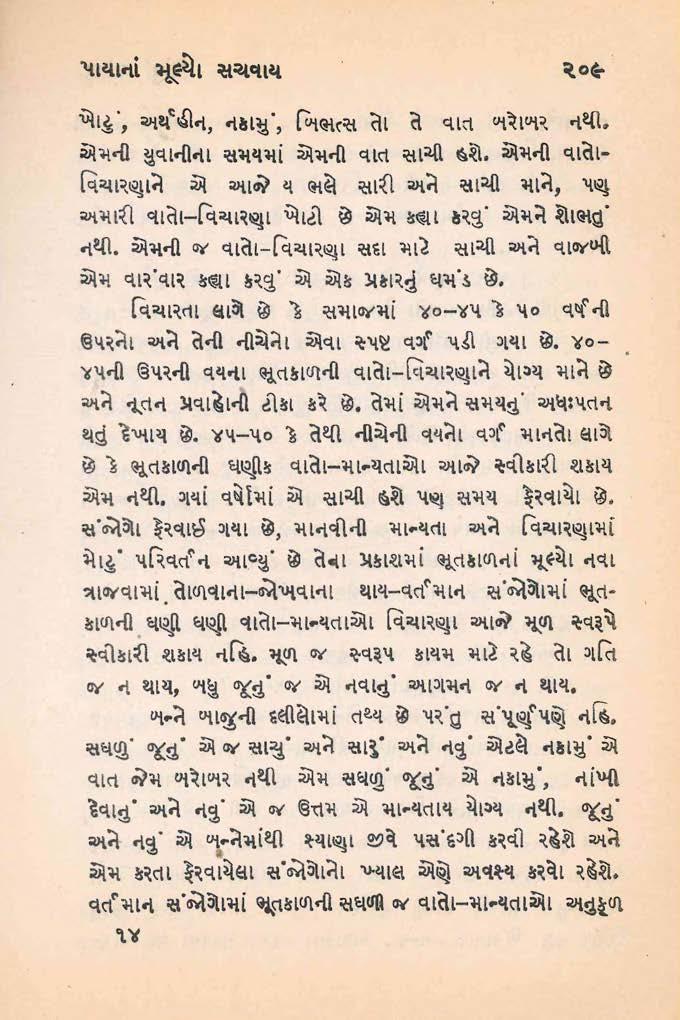 પાયાનાં મૂલ્યો સચવાય ૨૦૯
ખોટું, અર્થહીન, નકામું, બિભત્સ તો તે વાત બરોબર નથી.
એમની યુવાનીના સમયમાં એમની વાત સાચી હશે. એમની વાતો-
વિચારણાને એ આજે ય ભલે સારી અને સાચી માને, પણ
અમારી વાતો–વિચારણા ખોટી છે એમ કહ્યા કરવું એમને શોભતું
નથી. એમની જ વાતો–વિચારણા સદા માટે સાચી અને વાજબી
એમ વારંવાર કહ્યા કરવું એ એક પ્રકારનું ઘમંડ છે.
વિચારતા લાગે છે કે સમાજમાં ૪૦–૪૫ કે ૫૦ વર્ષની
ઉપરનો અને તેની નીચેનો એવા સ્પષ્ટ વર્ગ પડી ગયા છે. ૪૦–
૪૫ની ઉપરની વયના ભૂતકાળની વાતો–વિચારણાને યોગ્ય માને છે
અને નૂતન પ્રવાહોની ટીકા કરે છે. તેમાં એમને સમયનું અધઃપતન
થતું દેખાય છે. ૪૫–૫૦ કે તેથી નીચેની વયનો વર્ગ માનતો લાગે
છે કે ભૂતકાળની ઘણીક વાતો–માન્યતાઓ આજે સ્વીકારી શકાય
એમ નથી. ગયાં વર્ષોમાં એ સાચી હશે પણ સમય ફેરવાયો છે.
સંજોગો ફેરવાઈ ગયા છે, માનવીની માન્યતા અને વિચારણામાં
મોટું પરિવર્તન આવ્યું છે તેના પ્રકાશમાં ભૂતકાળનાં મૂલ્યો નવા
ત્રાજવામાં તોળવાના–જોખવાના થાય–વર્તમાન સંજોગોમાં ભૂત-
કાળની ઘણી ઘણી વાતો–માન્યતાઓ વિચારણા આજે મૂળ સ્વરૂપે
સ્વીકારી શકાય નહિ. મૂળ જ સ્વરૂપ કાયમ માટે રહે તો ગતિ
જ ન થાય, બધુ જૂનું જ એ નવાનું આગમન જ ન થાય.
બન્ને બાજુની દલીલોમાં તથ્ય છે પરંતુ સંપૂર્ણપણે નહિ.
સઘળું જૂનું એ જ સાચું અને સારું અને નવું એટલે નકામું એ
વાત જેમ બરોબર નથી એમ સઘળું જૂનું એ નકામું, નાંખી
દેવાનું અને નવું એ જ ઉત્તમ એ માન્યતાય યોગ્ય નથી. જૂનું
અને નવું એ બન્નેમાંથી શ્યાણા જીવે પસંદગી કરવી રહેશે અને
એમ કરતા ફેરવાયેલા સંજોગોનો ખ્યાલ એણે અવશ્ય કરવો રહેશે.
વર્તમાન સંજોગોમાં ભૂતકાળની સઘળી જ વાતો–માન્યતાઓ અનુકૂળ
૧૪